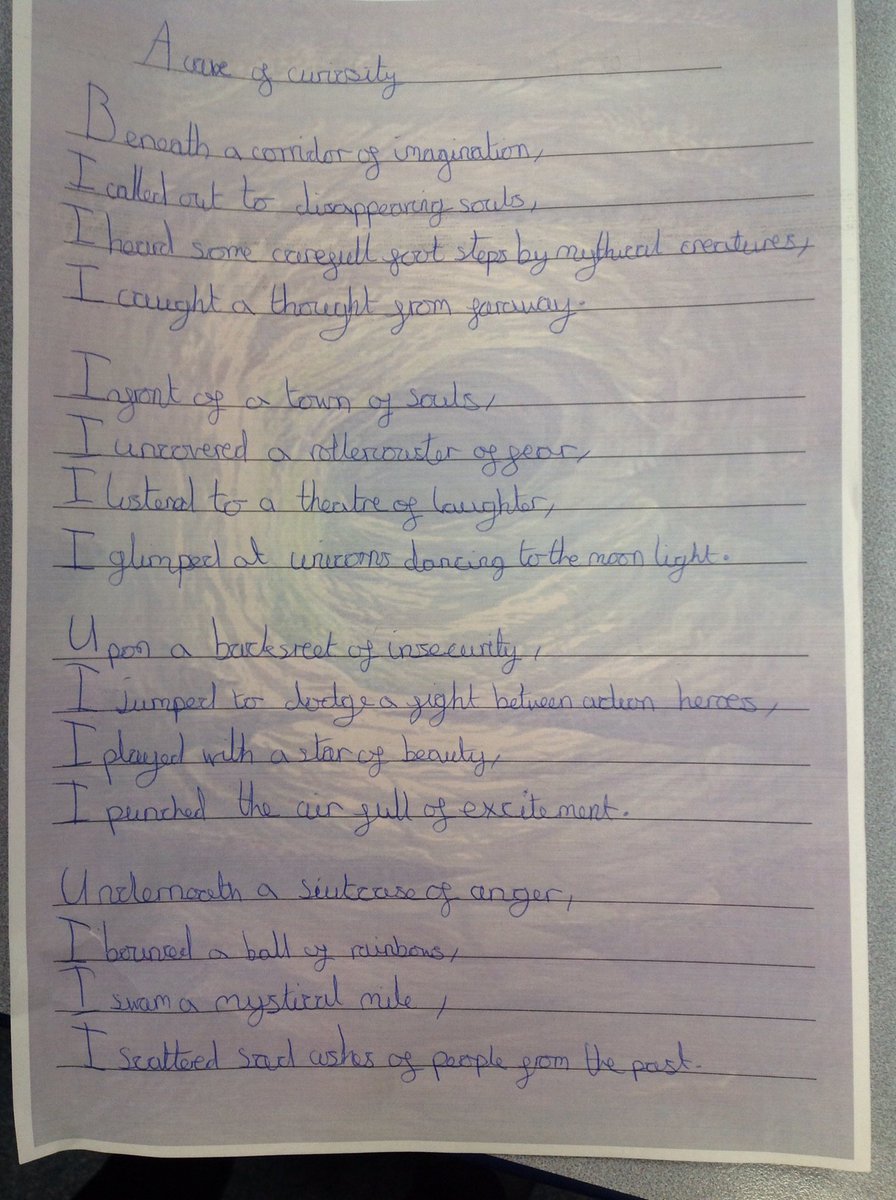 A cave of curiosity
Beneath a corridor of imagination,
I called out to disappearing souls,
I heard some carefull foot steps by mythical creatures,
I caught a thought from faraway.
Infront of a town of souls,
I uncovered a rollercoaster of fear,
I listened to a theatre of laughter,
I glimped at unicorns dancing to the moon light.
Upon a backsreet of insecurity,
I jumped to dodge a fight between action heroes,
I played with a star of beauty,
I punched the air full of excitement.
Underneath a siutcase of anger,
I bounced a ball of rainbows,
I swam a mystical mile,
I scattered sad ashes of people from the past.